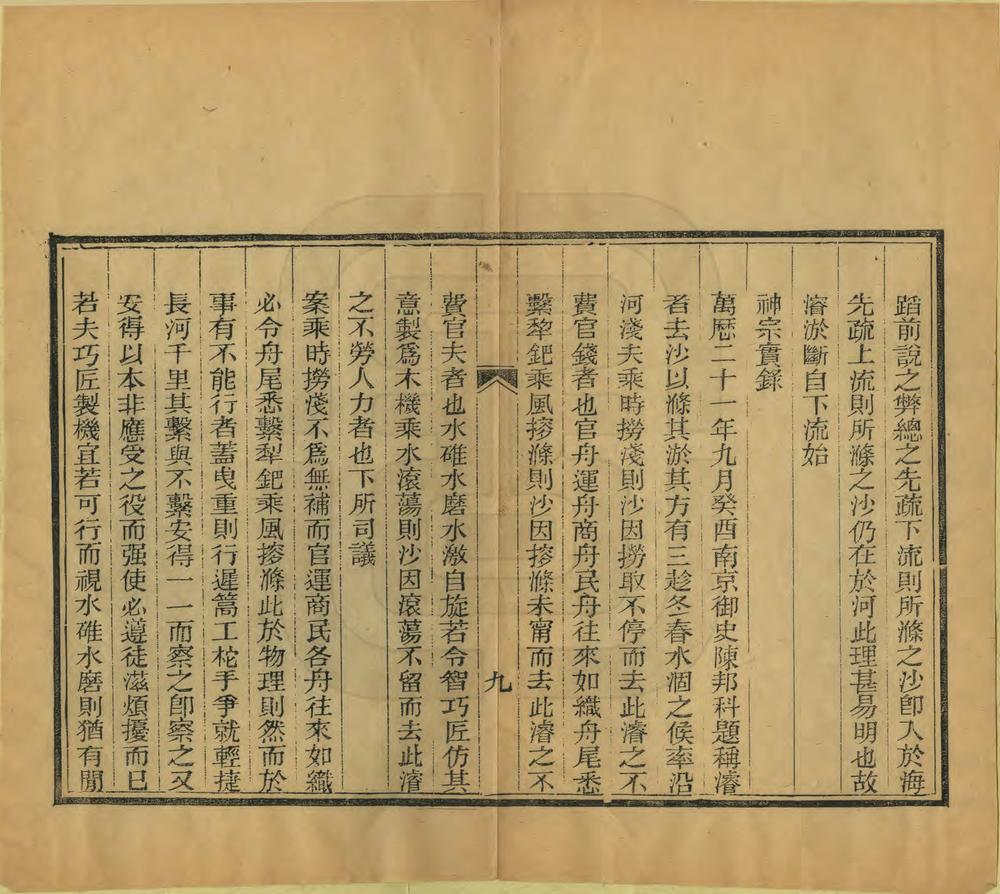 蹈前說之弊總之先疏下流則所滌之沙卽入於海
先疏上流則所滌之沙仍在於河此理甚易明也故
濬淤斷自下流始
神宗實錄
萬歷二十一年九月癸酉南京御史陳邦科題稱濬
者去沙以滌其淤其方有三趁冬春水涸之候率沿
河淺夫乘時撈淺則沙因撈取不停而去此濬之不
費官錢者也官舟運舟商舟民舟往來如織舟尾悉
繫犂鈀乘風搜滌則沙因搜滌未甯而去此濬之不
九
費官夫者也水碓水磨水激自旋若令智巧匠仿其
意製爲木機乘水滾蕩則沙因滾蕩不留而去此濬
之不勞人力者也下所司議
案乘時撈淺不爲無補而官運商民各舟往來如織
必令舟尾悉繫犁鈀乘風搜滌此於物理則然而於
事有不能行者蓋曳重則行遲篙工柁手爭就輕捷
長河千里其繫與不繫安得一一而察之卽察之又
安得以本非應受之役而强使必遵徒滋煩擾而已
若夫巧匠製機宜若可行而視水碓水磨則猶有閒